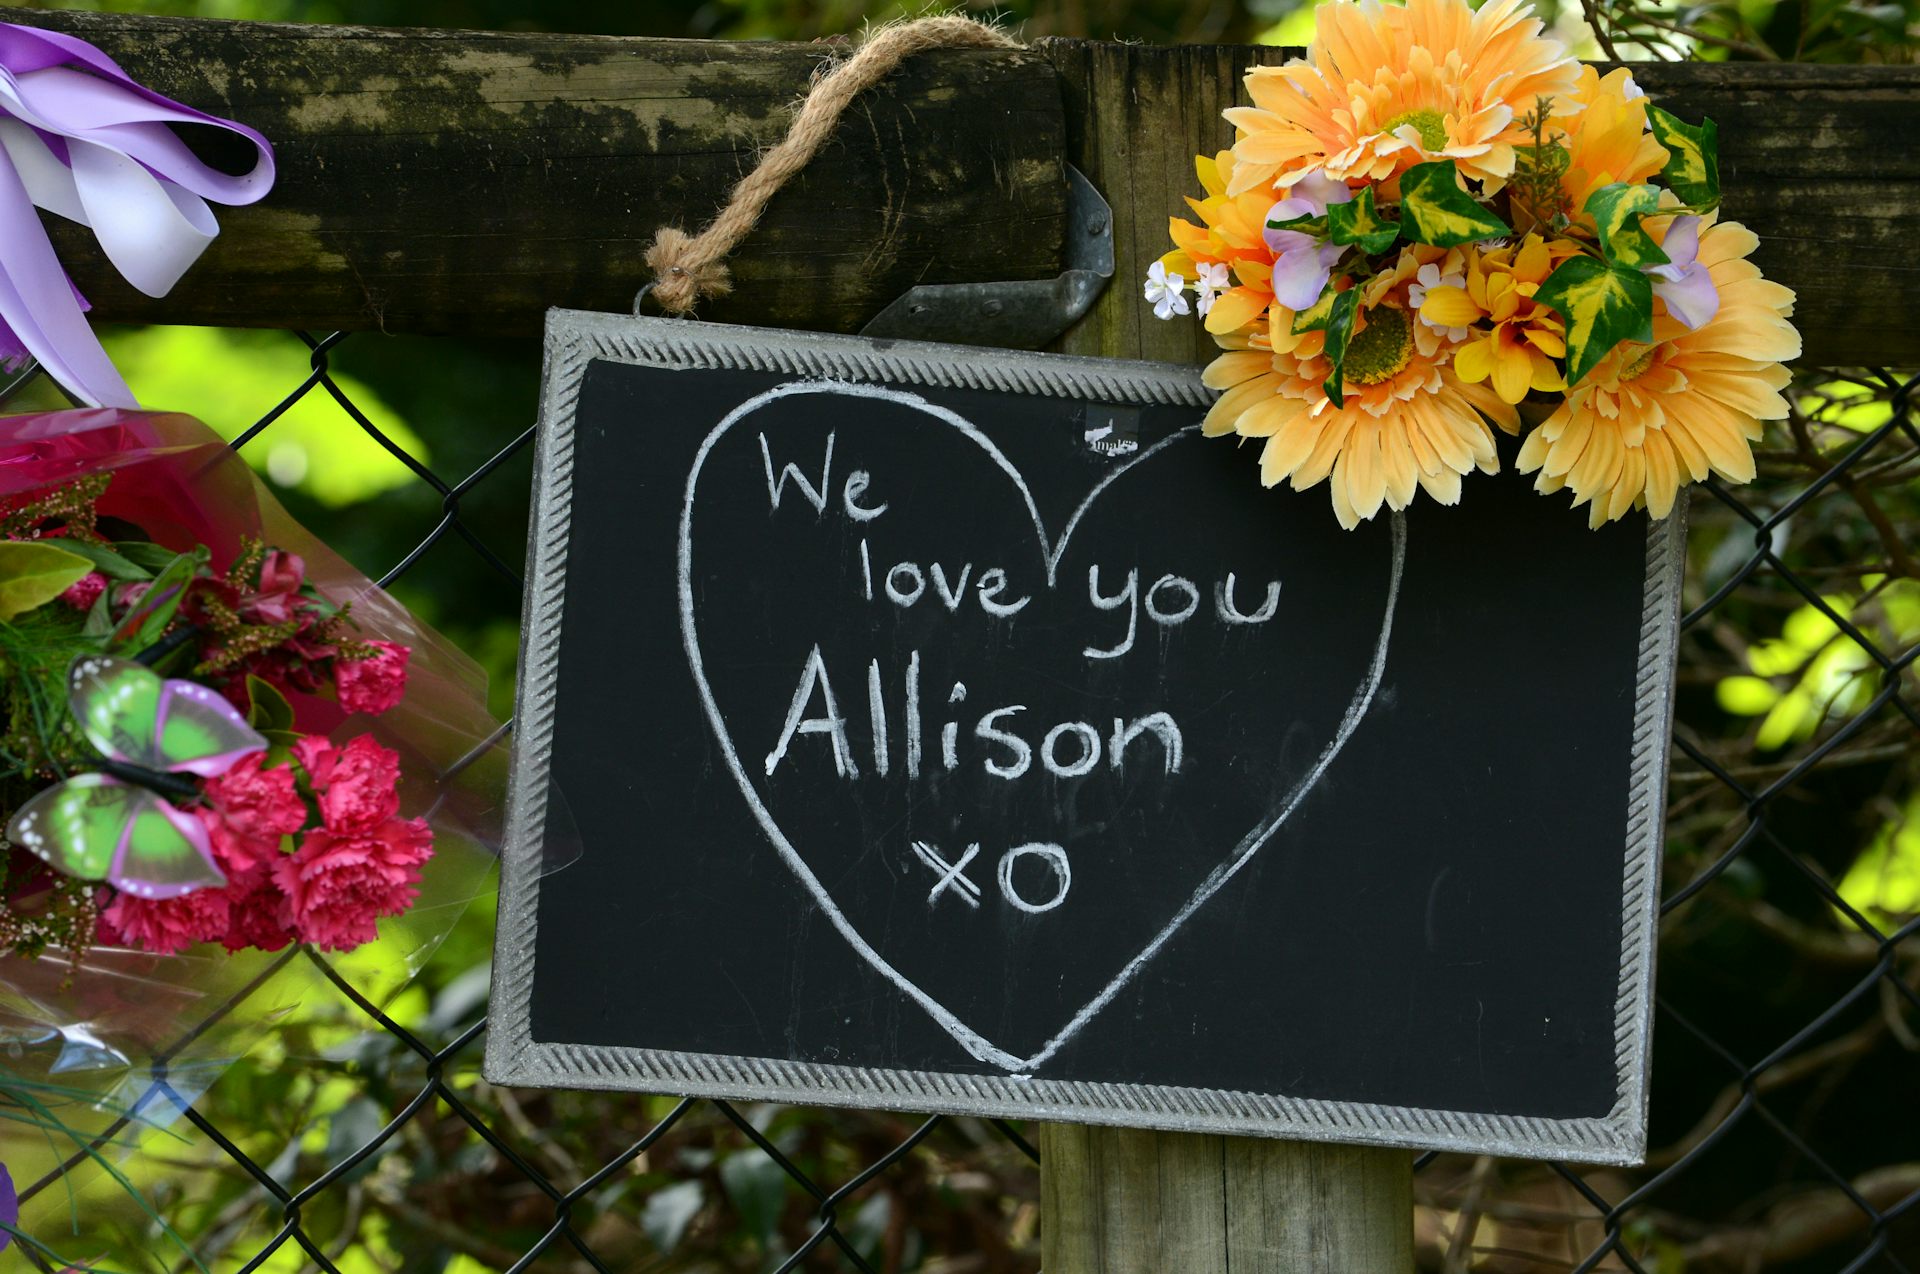 We
love you
Allison
xo